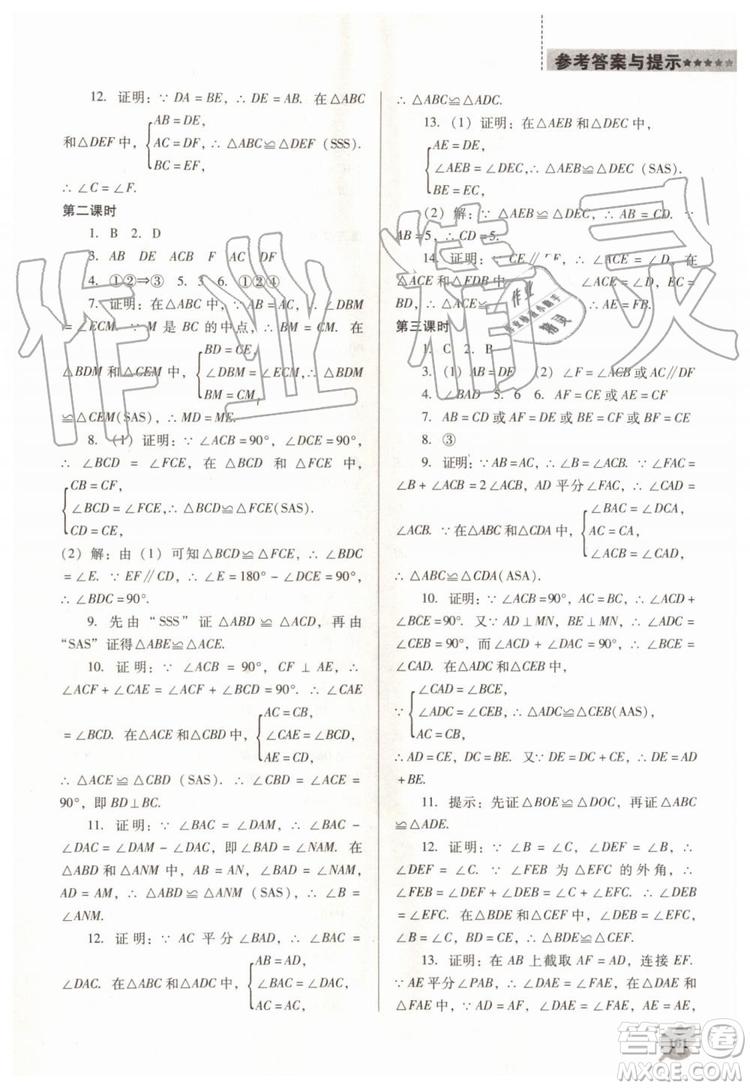 参考答案与提示★★★★★
12. 证明：∵ DA = BE，∴ DE = AB. 在△ABC
和△DEF 中，{AB = DE，
AC = DF，∴ △ABC≌△DEF (SSS).
BC = EF，
∴ ∠C = ∠F.
第二课时
1. B 2. D
3. AB DE ∠BAC F AC DF
4. ①②⇒③ 5. 5 6. ①②④
7. 证明：∵ AB = AC，∴ ∠DBM
= ∠ECM. ∵ M 是 BC 的中点，∴ BM = CM. 在
△BDM 和△CEM 中，{BD = CE，
∠DBM = ∠ECM，∴ △BDM
BM = CM
≌△CEM(SAS)，∴ MD = ME.
8. (1) 证明：∵ ∠ACB = 90°，∠DCE = 90°，
∴ ∠BCD = ∠FCE，在△BCD 和△FCE 中，
{CB = CF，
∠BCD = ∠FCE，∴ △BCD≌△FCE(SAS).
CD = CE，
(2) 解：由 (1) 可知△BCD≌△FCE，∴ ∠BDC
= ∠E. ∵ EF∥CD，∴ ∠E = 180° − ∠DCE = 90°，
∴ ∠BDC = 90°.
9. 先由“SSS”证△ABD≌△ACD，再由
“SAS”证得△ABE≌△ACE.
10. 证明：∵ ∠ACB = 90°，CF ⊥ AE，∴
∠ACF + ∠CAE = ∠ACF + ∠BCD，∴ ∠CAE
= ∠BCD. 在△ACE 和△CBD 中，{AC = CB，
∠CAE = ∠BCD，
AE = CD，
∴ △ACE ≌ △CBD (SAS). ∴ ∠CBD = ∠ACE =
90°，即 BD⊥BC.
11. 证明：∵ ∠BAC = ∠DAM，∴ ∠BAC −
∠DAC = ∠DAM − ∠DAC，即∠BAD = ∠NAM. 在
△ABD 和△ANM 中，AB = AN，∠BAD = ∠NAM，
AD = AM，∴ △ABD≌△ANM (SAS)，∴ ∠B =
∠ANM.
12. 证明：∵ AC 平分∠BAD，∴ ∠BAC =
∠DAC. 在△ABC 和△ADC 中，{AB = AD，
∠BAC = ∠DAC，
AC = AC，
∴ △ABC≌△ADC.
13. (1) 证明：在△AEB 和△DEC 中，
{AE = DE，
∠AEB = ∠DEC，∴ △AEB≌△DEC (SAS).
BE = EC，
(2) 解：∵ △AEB≌△DEC，∴ AB = CD. ∵
AB = 5，∴ CD = 5.
14. 证明：∵ CE∥
△ACE 和△FDB 中
≌
∴ AE = FB.
第三课时
1. C 2. B
3. (1) AB = DE (2) ∠F = ∠ACB 或AC∥DF
4. ∠B = ∠BAD 5. 6 6. AF = CE 或 AE = CF
7. AB = CD 或 AF = DE 或 BF = CE 或 BE = CF
8. ③
9. 证明：∵ AB = AC，∴ ∠B = ∠ACB. ∵ ∠FAC
= ∠B + ∠ACB = 2∠ACB，AD 平分∠FAC，∴ ∠CAD =
∠ACB. ∵在△ABC 和△CDA 中，{∠BAC = ∠DCA，
AC = AC，
∠ACB = ∠CAD，
∴ △ABC≌△CDA(ASA).
10. 证明：∵ ∠ACB = 90°，AC = BC，∴ ∠ACD +
∠BCE = 90°. 又∵ AD⊥MN，BE⊥MN，∴ ∠ADC
= ∠CEB = 90°，而∠ACD + ∠DAC = 90°，∴ ∠BCE =
∠CAD. 在△ADC 和△CEB 中，
∵ {∠CAD = ∠BCE，
∠ADC = ∠CEB，∴ △ADC≌△CEB(AAS)，
AC = CB，
∴ AD = CE，DC = BE. 又∵ DE = DC + CE，∴ DE = AD
+ BE.
11. 提示：先证△BOE≌△DOC，再证△ABC
≌△ADE.
12. 证明：∵ ∠B = ∠C，∠DEF = ∠B，∴
∠DEF = ∠C. ∵ ∠FEB 为△EFC 的外角，∴
∠FEB = ∠DEF + ∠DEB = ∠C + ∠EFC. ∴
∠DEB = ∠EFC. 又∵ BD = CE，∠B = ∠C，∴
△BDE≌△CEF，∴ DE = EF.
13. 证明：在 AB 上截取 AF = AD，连接 EF.
∵ AE 平分∠PAB，∴ ∠DAE = ∠FAE. 在△DAE 和
△FAE 中，∵ AD = AF，∠DAE = ∠FAE，AE = AE，
161
作业精灵
作业
精灵
答案圈
MXQE.COM